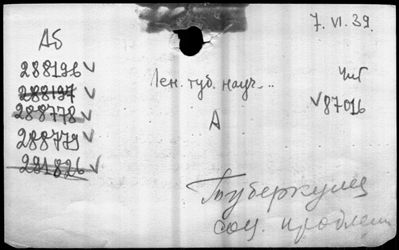 7. VI. 39.
Аб
288196
288197
288778
288779
291826
Лен. туб. науч...
А
ЧиГ
87016
Туберкулез
соц. проблем